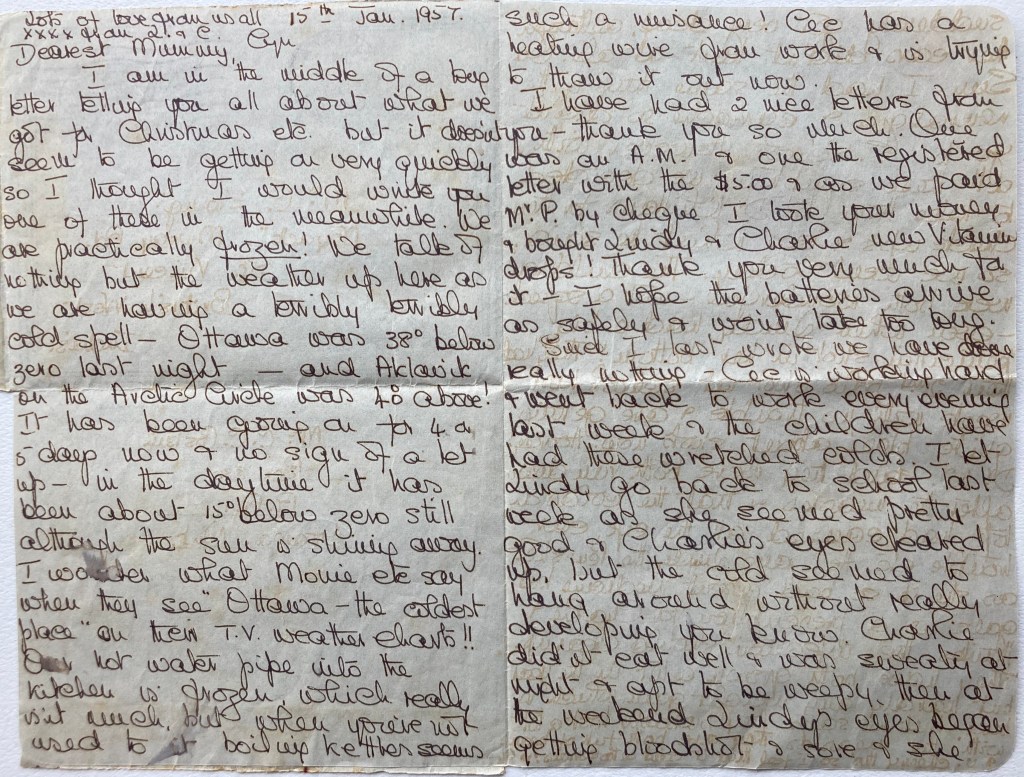 Lots of love from us all 15th Jan. 1957.
xxxx from L. & C.
Dearest Mummy, Cyn
I am in the middle of a long
letter telling you all about what we
got for Christmas etc. but it doesn't
seem to be getting on very quickly
so I thought I would write you
one of these in the meanwhile. We
are practically frozen! We talk of
nothing but the weather up here as
we are having a terribly terribly
cold spell — Ottawa was 38° below
zero last night — and Aklavik
on the Arctic Circle was 40 above!
It has been going on for 4 or
5 days now & no sign of a let
up — in the daytime it has
been about 15° below zero still
although the sun is shining away.
I wonder what Movie etc say
when they see "Ottawa — the coldest
place" on their T.V. weather charts!!
Our hot water pipe into the
kitchen is frozen, which really
isn't much, but when you're not
used to it boiling kettles seems
such a nuisance! Cec has a
heating wire from work & is trying
to thaw it out now.
I have had 2 nice letters from
you — thank you so much. One
was an A.M. & one the registered
letter with the $5.00 & as we paid
Mr P. by cheque I took your money
& bought Lindy & Charlie new Vitamin
drops! Thank you very much for
it — I hope the batteries arrive
as safely & won't take too long.
Since I last wrote we have done
really nothing — Cec is working hard
& went back to work every evening
last week & the children have
had these wretched colds. I let
Lindy go back to school last
week as she seemed pretty
good & Charlie's eyes cleared
up, but the cold seemed to
hang around without really
developing you know. Charlie
didn't eat well & was sweaty at
night & apt to be weepy, then at
the weekend Lindy's eyes began
getting bloodshot & sore & she